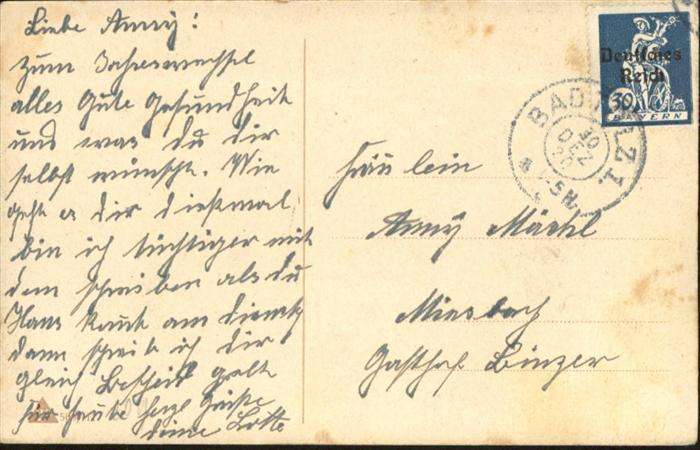 Liebe Anny:
zum Jahreswechsel
alles Gute Gesundheit
und was du dir
selbst wünscht. Wie
geht es dir diesmal
bin ich tüchtiger mit
dem schreiben als du
Hans kommt am Dienstg
dann schreib ich dir
gleich Bescheid
für heute herzl Grüße
deine Lotte
Deutsches
Reich
30
BAYERN
BAD TÖLZ 1.
30
DEZ
20
Fräulein
Anny Märkl
Miesbach
Gasthof Binzer